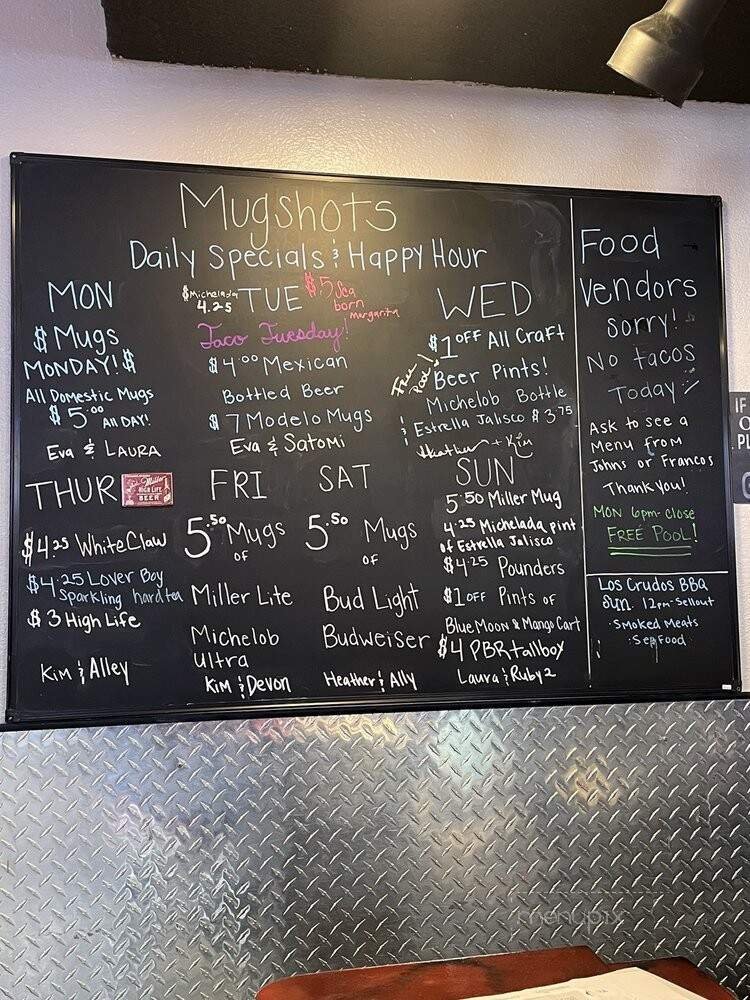 Mugshots
Daily Specials & Happy Hour
MON
$ Mugs
MONDAY! $
All Domestic Mugs
$5.00 All DAY!
Eva & LAURA
$Michelada
4.25
TUE
$5 Sea
born
margarita
Taco Tuesday!
$4.00 Mexican
Bottled Beer
$7 Modelo Mugs
Eva & Satomi
WED
$1 OFF All Craft
Beer Pints!
Free
Pool!
Michelob Bottle
& Estrella Jalisco $3.75
Heather + Kim
THUR
Miller
HIGH LIFE
BEER
$4.25 White Claw
$4.25 Lover Boy
Sparkling hard tea
$3 High Life
Kim & Alley
FRI
5.50 Mugs
OF
Miller Lite
Michelob
Ultra
Kim & Devon
SAT
5.50 Mugs
OF
Bud Light
Budweiser
Heather & Ally
SUN
5.50 Miller Mug
4.25 Michelada pint
of Estrella Jalisco
$4.25 Pounders
$1 OFF Pints of
Blue Moon & Mango Cart
$4 PBR tallboy
Laura & Ruby 2
Food
Vendors
Sorry!
No tacos
Today
Ask to see a
Menu from
Johns or Francos
Thank you!
MON 6pm-close
FREE POOL!
Los Crudos BBQ
Sun. 12pm-Sellout
·Smoked Meats
·Seafood
IF
menupix